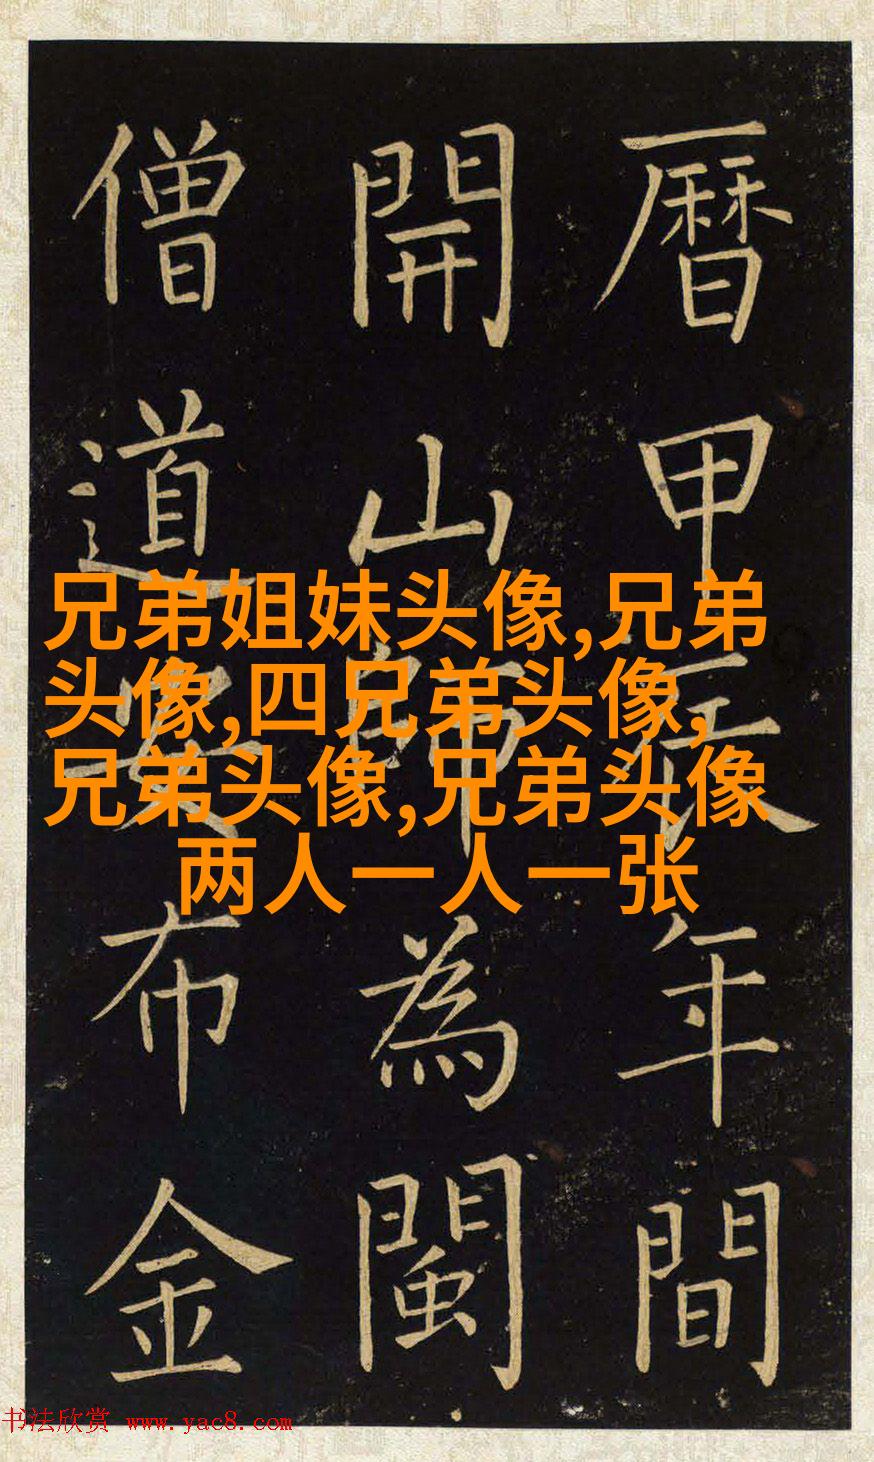 曆甲辰年間
開山師為閩
僧道安布金
兄弟姐妹头像,兄弟
头像,四兄弟头像,
兄弟头像,兄弟头像
两人一人一张
书法欣赏 www.yac8.com